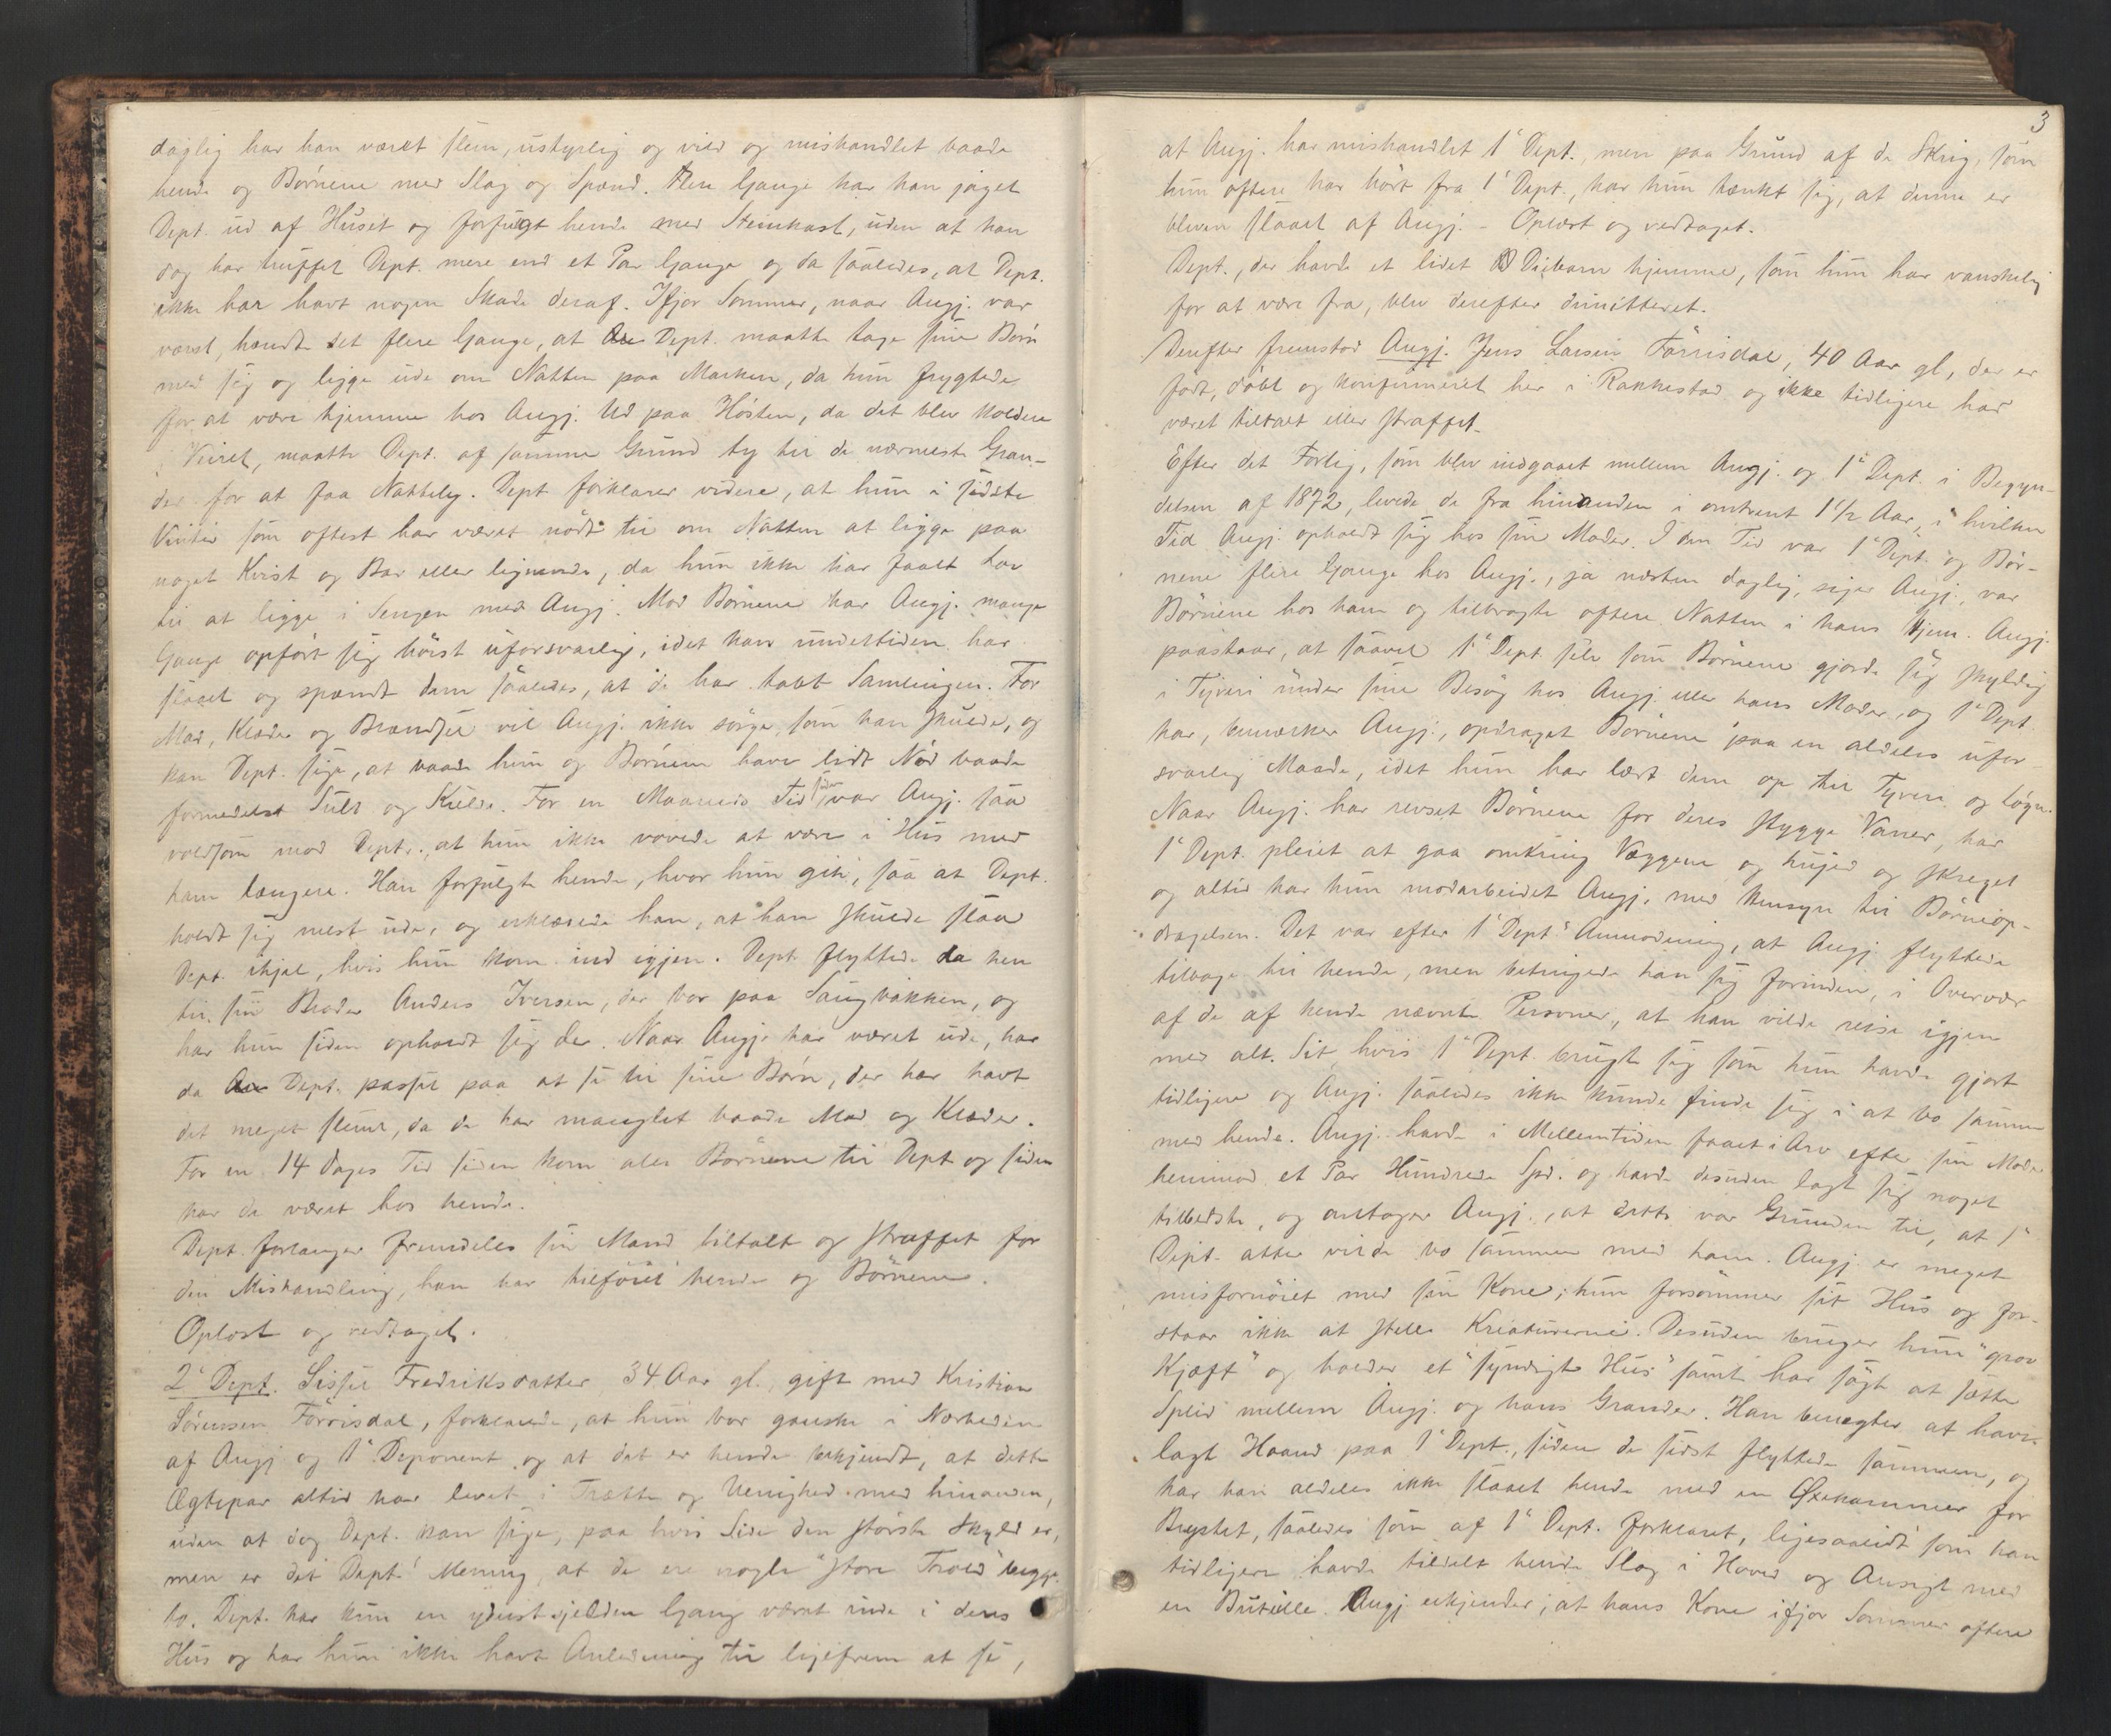 daglig har han været slem, ustyrlig og vild og mishandlet baade
hende og Børnene med Slag og Spænd. Flere Gange har han jaget
Dept. ud af Huset og forfulgt hende med Steinkast, uden at han
dog har truffet Dept. mere end et Par Gange og da saaledes, at Dept.
ikke har havt nogen Skade deraf. Ifjor Sommer, naar Angj. var
værst, hændte det flere Gange, at Dept. maatte tage sine Børn
med sig og ligge ude om Natten paa Marken, da hun frygtede
for at være hjemme hos Angj. Ud paa Høsten, da det blev koldere
i Veiret, maatte Dept. af samme Grund ty til de nærmeste Gran-
der for at faa Nattely. Dept forklarer videre, at hun i sidste
Vinter som oftest har været nødt til om Natten at ligge paa
noget Kvist og Bar eller lignende, da hun ikke har faaet Lov
til at ligge i Sengen med Angj. Mod Børnene har Angj. mange
Gange opført sig høist uforsvarlig, idet han undertiden har
slaaet og spændt dem saaledes, at de har tabt Samlingen. For
Mad, Klæder og Brændsel vil Angj. ikke sørge, som han skulde, og
kan Dept. sige, at baade hun og Børnene have lidt Nød baade
formedelst Sult og Kulde. For en Maaneds Tid siden var Angj. saa
voldsom mod Dept., at hun ikke vovede at være i Hus med
ham længere. Han forfulgte hende, hvor hun gik, saa at Dept.
holdt sig mest ude, og erklærede han, at han skulde slaa
Dept. ihjel, hvis hun kom ind igjen. Dept. flyttede da hen
til sin Broder Anders Iversen, der bor paa Saugbakken, og
har hun siden opholdt sig der. Naar Angj. har været ude, har
da Dept. passet paa at se til sine Børn, der har havt
det meget slemt, da de har manglet baade Mad og Klæder.
For en 14 Dages Tid siden kom alle Børnene til Dept og siden
har de været hos hende.
Dept. forlanger fremdeles sin Mand tiltalt og straffet for
den Mishandling, han har tilføiet hende og Børnene.
Oplæst og vedtaget.
2' Dept. Sissel Fredriksdatter, 34 Aar gl., gift med Kristian
Sørensen Førrisdal, forklarede, at hun bor ganske i Nærheden
af Angj og 1' Deponent og at det er hende bekjendt, at dette
Ægtepar altid har levet i Trætte og Uenighed med hinanden,
uden at dog Dept. kan sige, paa hvis Side den største Skyld er,
men er det Dept' Mening, at de ere nogle "store Trold" begge
to. Dept. har kun en yderst sjelden Gang været inde i deres
Hus og har hun ikke havt Anledning til ligefrem at se,
3
at Angj. har mishandlet 1' Dept., men paa Grund af de Skrig, som
hun oftere har hørt fra 1' Dept., har hun tænkt sig, at denne er
bleven slaaet af Angj. - Oplæst og vedtaget.
Dept., der havde et lidet Diebarn hjemme, som hun har vanskelig
for at være fra, blev derefter dimitteret.
Derefter fremstod Angj. Jens Larsen Førrisdal, 40 Aar gl, der er
født, døbt og konfirmeret her i Rakkestad og ikke tidligere har
været tiltalt eller straffet.
Efter det Forlig, som blev indgaaet mellem Angj. og 1' Dept. i Begyn-
delsen af 1872, levede de fra hinanden i omtrent 1 1/2 Aar, i hvilken
Tid Angj. opholdt sig hos sin Moder. I den Tid var 1' Dept. og Bør-
nene flere Gange hos Angj., ja næsten daglig, siger Angj., var
Børnene hos ham og tilbragte oftere Natten i hans Hjem. Angj.
paastaar, at saavel 1' Dept. selv som Børnene gjorde sig skyldig
i Tyveri under sine Besøg hos Angj. eller hans Moder, og 1' Dept.
har, bemærker Angj., opdraget Børnene paa en aldeles ufor-
svarlig Maade, idet hun har lært dem op til Tyveri og Løgn.
Naar Angj. har revset Børnene for deres stygge Vaner, har
1' Dept. pleiet at gaa omkring Væggene og hujed og skreget
og altid har hun modarbeidet Angj. med Hensyn til Børneop-
dragelsen. Det var efter 1' Dept's Anmodning, at Angj. flyttede
tilbage til hende, men betingede han sig forinden, i Overvær
af de af hende nævnte Personer, at han vilde reise igjen
med alt Sit, hvis 1' Dept. brugte sig som hun havde gjort
tidligere og Angj. saaledes ikke kunde finde sig i at bo sammen
med hende. Angj. havde i Mellemtiden faaet i Arv efter sin Moder
henimod et Par Hundrede Spd. og havde desuden lagt sig noget
tilbedste, og antager Angj., at dette var Grunden til, at 1'
Dept. atter vilde bo sammen med ham. Angj. er meget
misfornøiet med sin Kone; hun forsømmer sit Hus og for-
staar ikke at stelle Kreaturerne. Desuden bruger hun "grov
Kjæft" og holder et "syndigt Hus" samt har søgt at sætte
Splid mellem Angj. og hans Grander. Han benegter at have
lagt Haand paa 1' Dept., siden de sidst flyttede sammen, og
har han aldeles ikke slaaet hende med en Øxehammer for
Brystet, saaledes som af 1' Dept. forklaret, ligesaalidt som han
tidligere havde tildelt hende Slag i Hoved og Ansigt med
en Buteille. Angj erkjender, at hans Kone ifjor Sommer oftere